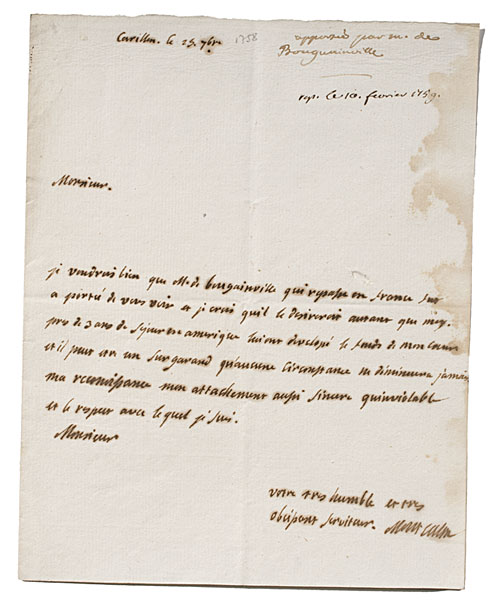 Carillon. le 25. 7bre 1758
apportée par m. de
Bougainville
rep. le 10. fevrier 1759.
Monsieur.
je voudrais bien que M. de bougainville qui repasse en france fut
a porteé de vous voir et je crois quil le desireroit autant que moy.
pres de 3 ans de sejour en amerique lui ont developé le fonds de mon coeur
et il peut etre un sur garand qu'aucune circonstance ne diminuera jamais
ma reconnaissance mon attachement aussi sincere quinviolable
et le respect avec le quel je suis.
Monsieur
votre tres humble et tres
obeissant serviteur. Montcalm